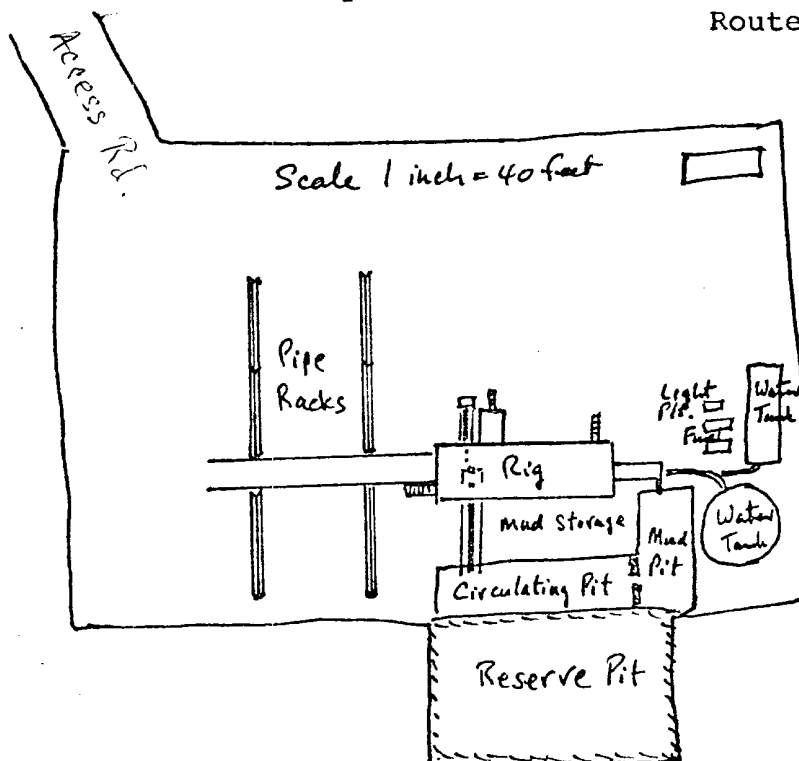 Route
Access Rd.
Scale 1 inch = 40 feet
Pipe
Racks
Light
Plt.
Fuel
Water
Tank
Rig
Mud Storage
Mud
Pit
Water
Tank
Circulating Pit
Reserve Pit